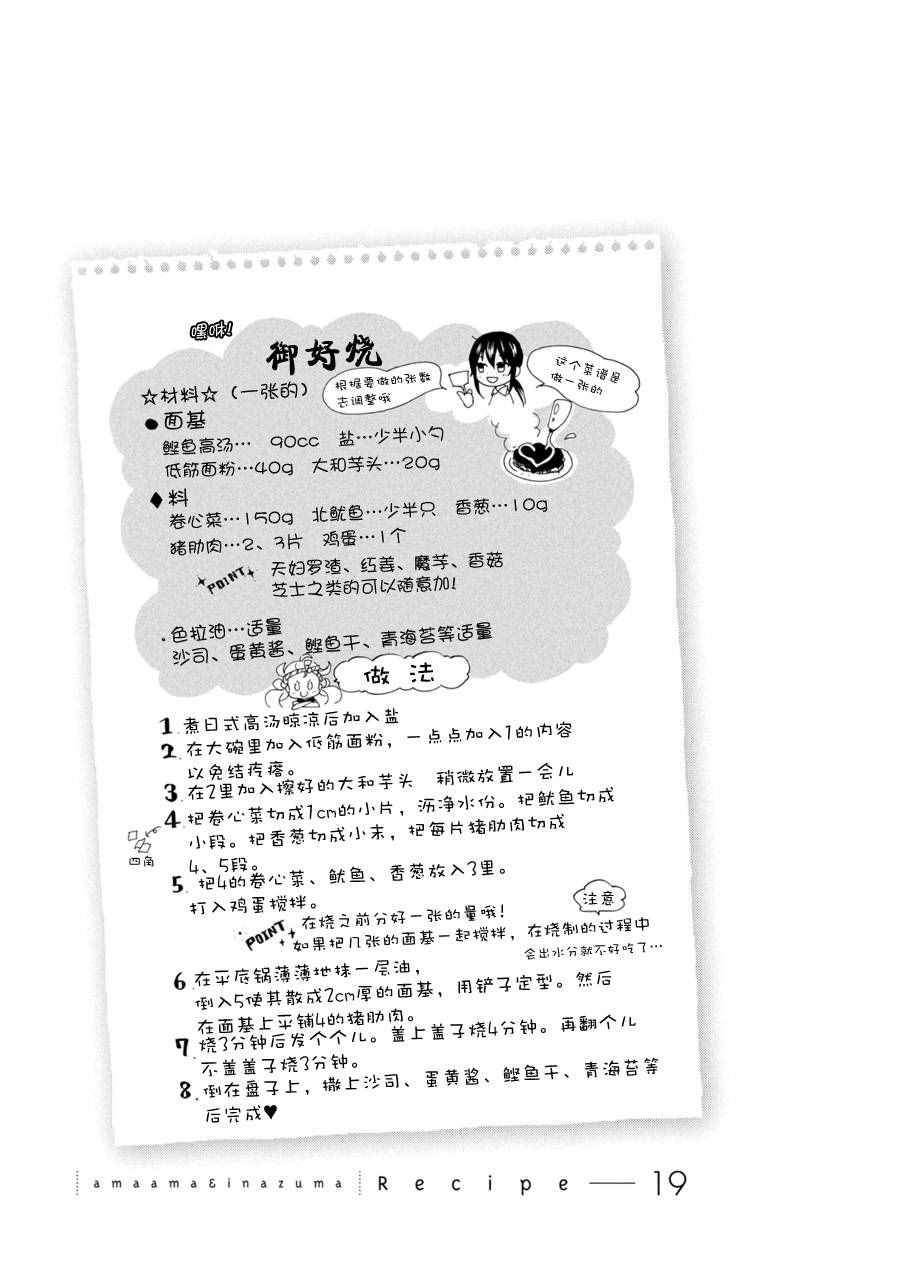 嘿咻!
御好烧
☆材料☆（一张的）
根据要做的张数
去调整哦
这个菜谱是
做一张的
●面基
鲣鱼高汤… 90cc 盐…少半小勺
低筋面粉…40g 大和芋头…20g
♦料
卷心菜…150g 北鱿鱼…少半只 香葱…10g
猪肋肉…2、3片 鸡蛋…1个
POINT
天妇罗渣、红姜、魔芋、香菇
芝士之类的可以随意加!
·色拉油…适量
沙司、蛋黄酱、鲣鱼干、青海苔等适量
做法
1.煮日式高汤晾凉后加入盐
2.在大碗里加入低筋面粉，一点点加入1的内容
以免结疙瘩。
3.在2里加入擦好的大和芋头 稍微放置一会儿
4.把卷心菜切成1cm的小片，沥净水份。把鱿鱼切成
小段。把香葱切成小末，把每片猪肋肉切成
4、5段。
四角
5.把4的卷心菜、鱿鱼、香葱放入3里。
打入鸡蛋搅拌。
注意
POINT
在烧之前分好一张的量哦!
如果把几张的面基一起搅拌，在烧制的过程中
会出水分就不好吃了…
6.在平底锅薄薄地抹一层油，
倒入5使其散成2cm厚的面基，用铲子定型。然后
在面基上平铺4的猪肋肉。
7.烧3分钟后发个个儿。盖上盖子烧4分钟。再翻个儿
不盖盖子烧3分钟。
8.倒在盘子上，撒上沙司、蛋黄酱、鲣鱼干、青海苔等
后完成♥
amaama&inazuma Recipe — 19